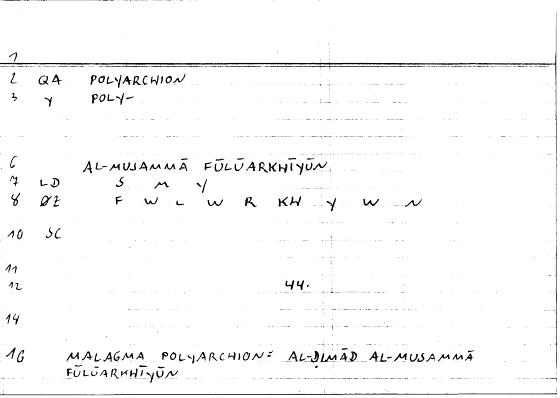 1
2 QA POLYARCHION
3 Y POLY-
6 AL-MUSAMMĀ FŪLŪARKHĪYŪN
7 LD S M Y
8 ØZ F W L W R KH Y W N
10 SC
11
12 44.
14
16 MALAGMA POLYARCHION: AL-ḌIMĀD AL-MUSAMMĀ
FŪLŪARKHĪYŪN